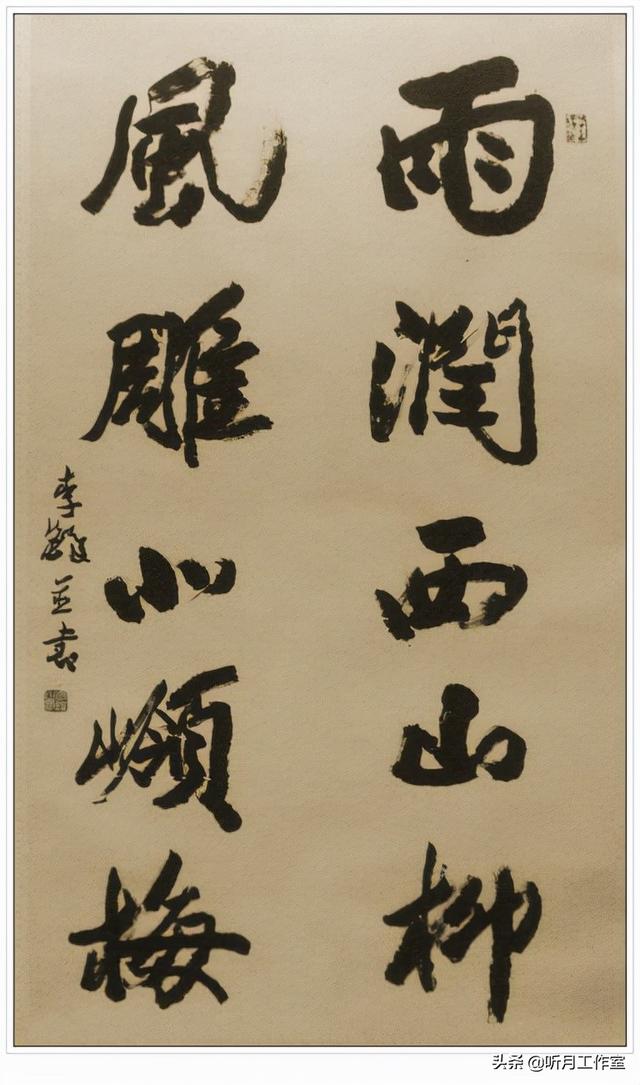 雨潤西山柳
風雕北嶺梅
李鐸並書
头条 @听月工作室